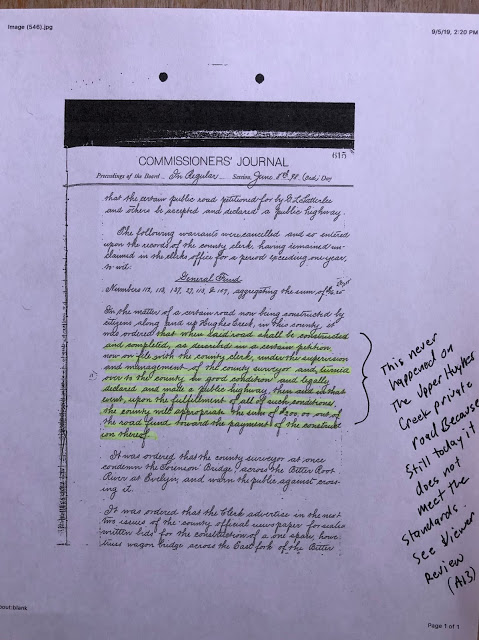 Image (546).jpg
9/5/19, 2:20 PM
615
COMMISSIONERS' JOURNAL
Proceedings of the Board. In Regular Session, June 8th 98. (3rd) Day
that the certain public road petitioned for by
and others be accepted and declared a public highway.
The following warrants were cancelled and so entered
upon the records of the county clerk, having remained un-
claimed in the clerks office for a period exceeding one year,
to-wit:
General Fund
Numbers 112, 113, 137, 27, 115, & 109, aggregating the sum of
In the matter of a certain road now being constructed by
citizens along and up Hughes Creek, in this county, it
was ordered that when said road shall be constructed
and completed, as described in a certain petition
now on file with the county clerk, under the supervision
and management of the county surveyor and turned
over to the county in good condition and legally
declared and made a public highway, then and in that
event, upon the fulfillment of all of such conditions,
the county will appropriate the sum of $200.00 out of
the road fund toward the payment of the construct-
ion thereof.
It was ordered that the county surveyor at once
condemn the Sorenson Bridge, across the Bitter Root
River at Evelyn, and warn the public against cross-
ing it.
It was ordered that the Clerk advertise in the next
two issues of the county official newspaper for sealed
written bids for the construction of a one span, how
truss wagon bridge across the East fork of the Bitter
This never
happened on
The Upper Hughes
Creek private
road Because
Still today it
does not
meet the
standards.
See Viewer
Review
(A13)
about:blank
Page 1 of 1